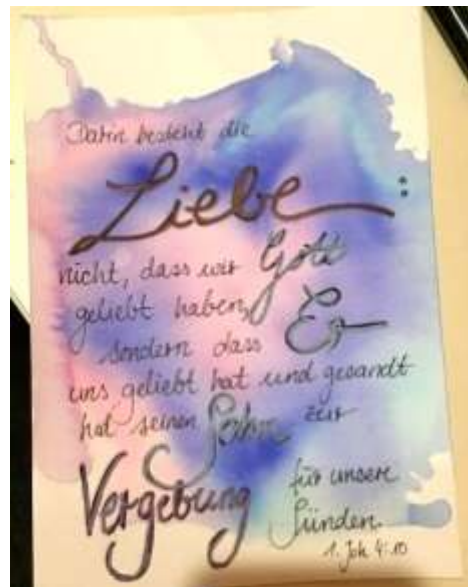 Darin besteht die
Liebe:
nicht, dass wir Gott
geliebt haben,
sondern dass Er
uns geliebt hat und gesandt
hat seinen Sohn zur
Vergebung für unsere
Sünden.
1. Joh 4:10